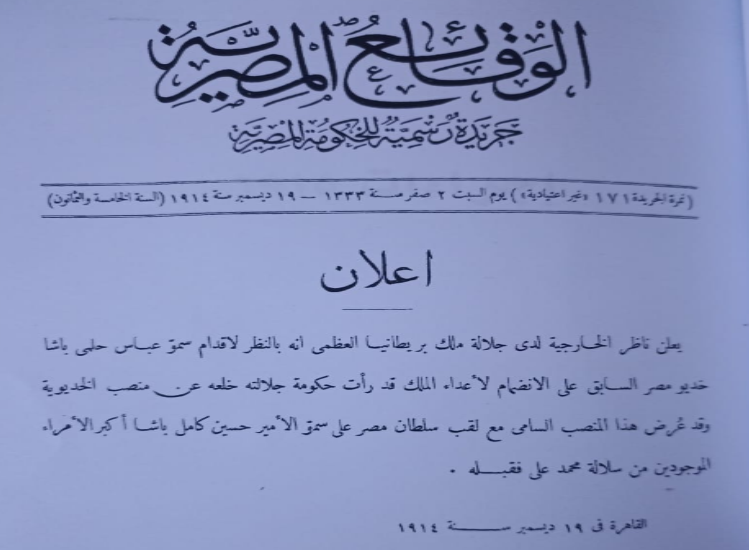 الوقائع المصرية
جريدة رسمية للحكومة المصرية
(نمرة الجريدة ١٧١ «غير اعتيادية») يوم السبت ٢ صفر سنة ١٣٣٣ – ١٩ ديسمبر سنة ١٩١٤ (السنة الخامسة والثمانون)
اعلان
يعلن ناظر الخارجية لدى جلالة ملك بريطانيا العظمى انه بالنظر لاقدام سموّ عباس حلمى باشا
خديو مصر السابق على الانضمام لأعداء الملك قد رأت حكومة جلالته خلعه عن منصب الخديوية
وقد عُرض هذا المنصب السامى مع لقب سلطان مصر على سموّ الأمير حسين كامل باشا أكبر الأمراء
الموجودين من سلالة محمد على فقبله .
القاهرة فى ١٩ ديسمبر سنة ١٩١٤